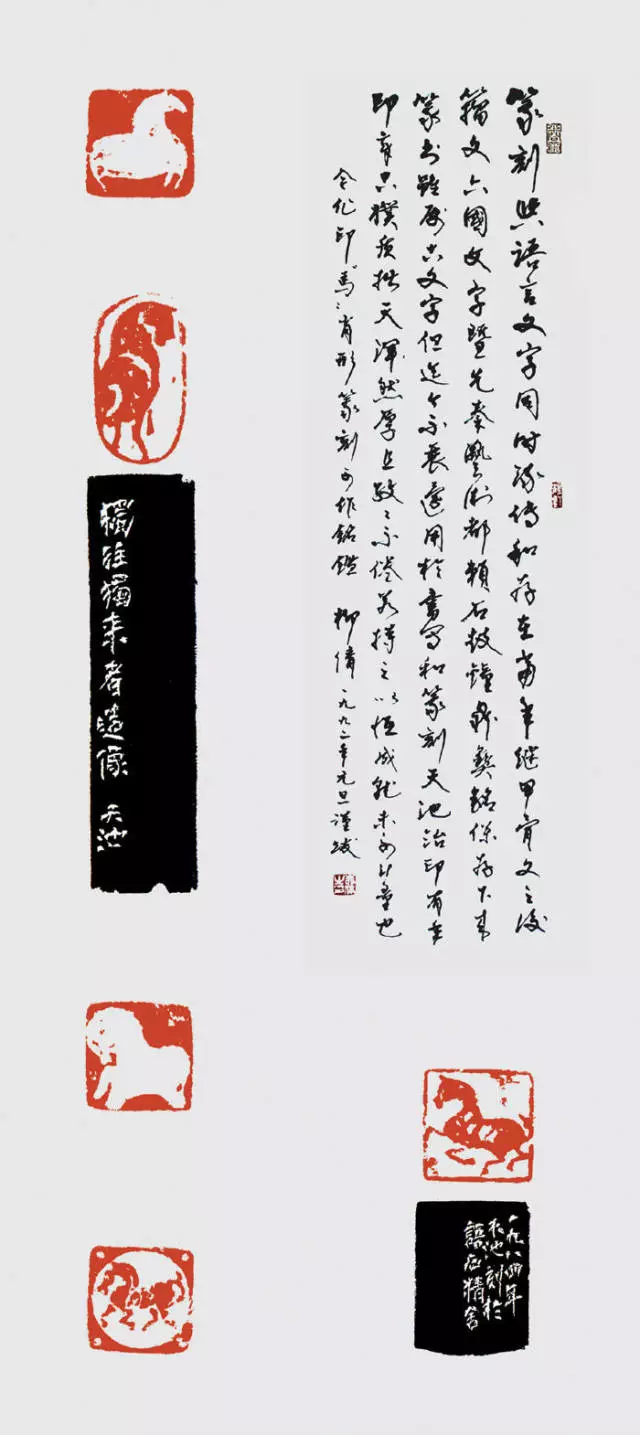 篆刻与語言文字同时流传和存在當年継甲骨文之後
籀文六國文字暨先秦艺术都賴石鼓鐘鼎契銘保存下来
篆书雖屬古文字但迄今不衰還用於書寫和篆刻天池治印有年
印章古樸质拙天渾然厚且孜〻不倦若持之以恒成就未可计量也
令作印馬〻肖形篆刻可作銘鑑 柳倩一九九二年元旦謹跋
獨往獨来者造像 天池
一九八四年
天池刻於
語石精舍